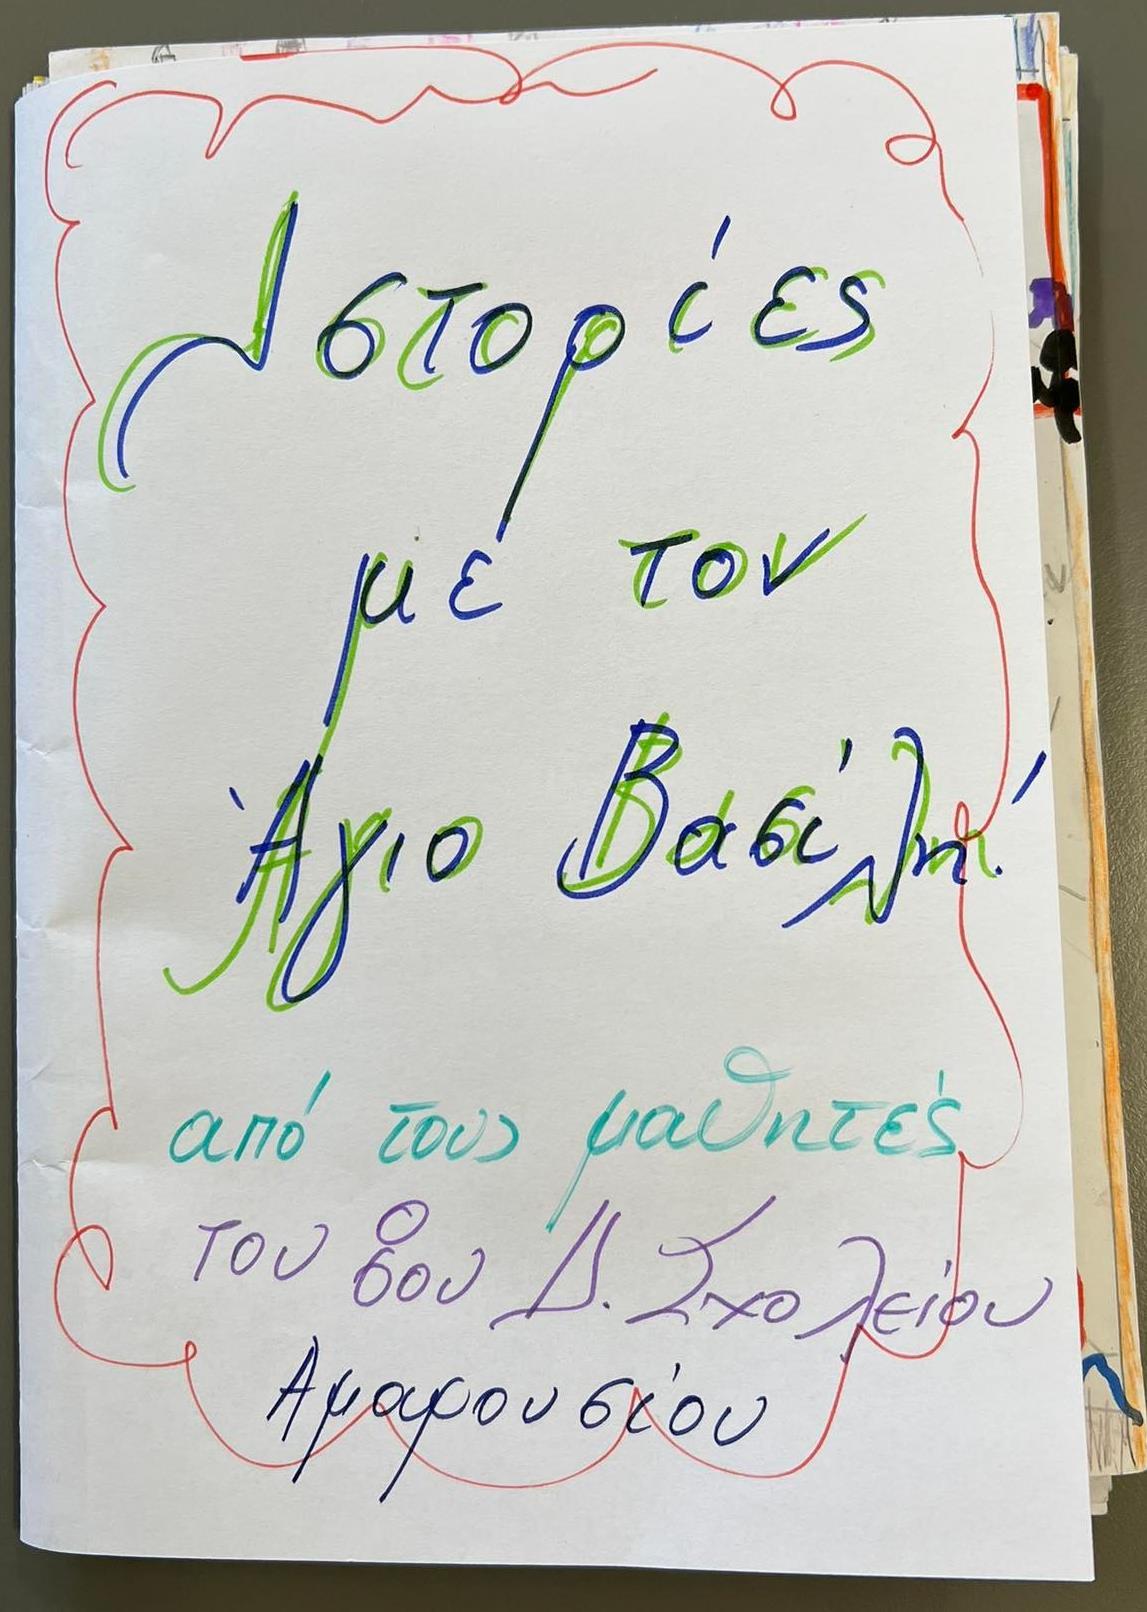 Ιστορίες
με τον
Άγιο Βασίλη!
από τους μαθητές
του 8ου Δ. Σχολείου
Αμαρουσίου